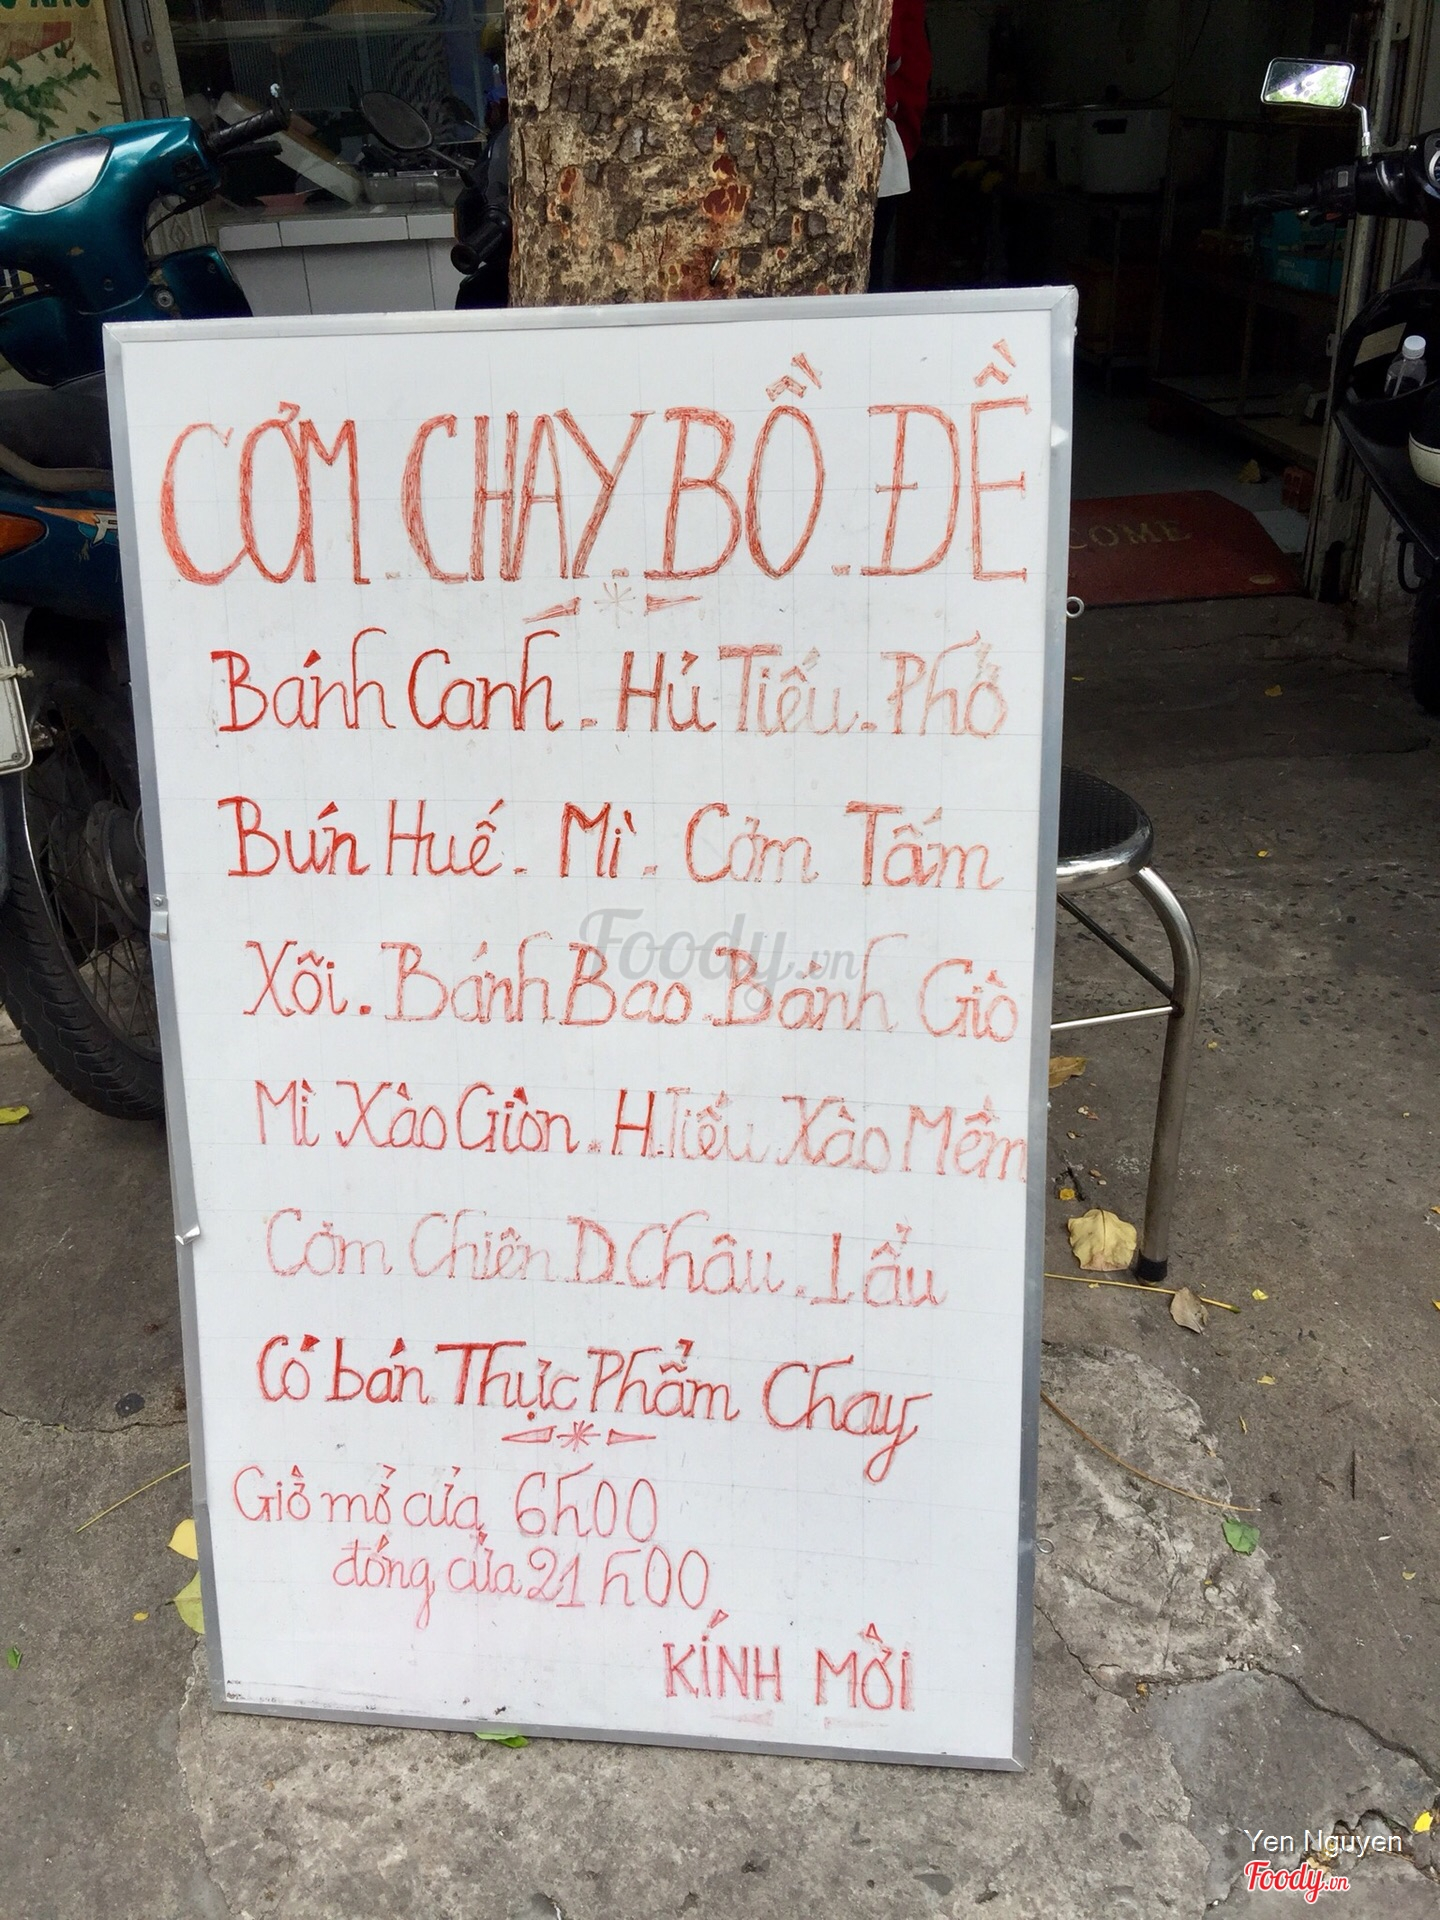 CƠM CHAY BỒ ĐỀ
Bánh Canh. Hủ Tiếu. Phở
Bún Huế. Mì. Cơm Tấm
Xôi. Bánh Bao. Bánh Giò
Mì Xào Giòn. H.Tiếu Xào Mềm
Cơm Chiên D.Châu. Lẩu
Có bán Thực Phẩm Chay
Giờ mở cửa 6h00
đóng cửa 21h00
KÍNH MỜI
Foody.vn
COME
Yen Nguyen
Foody.vn